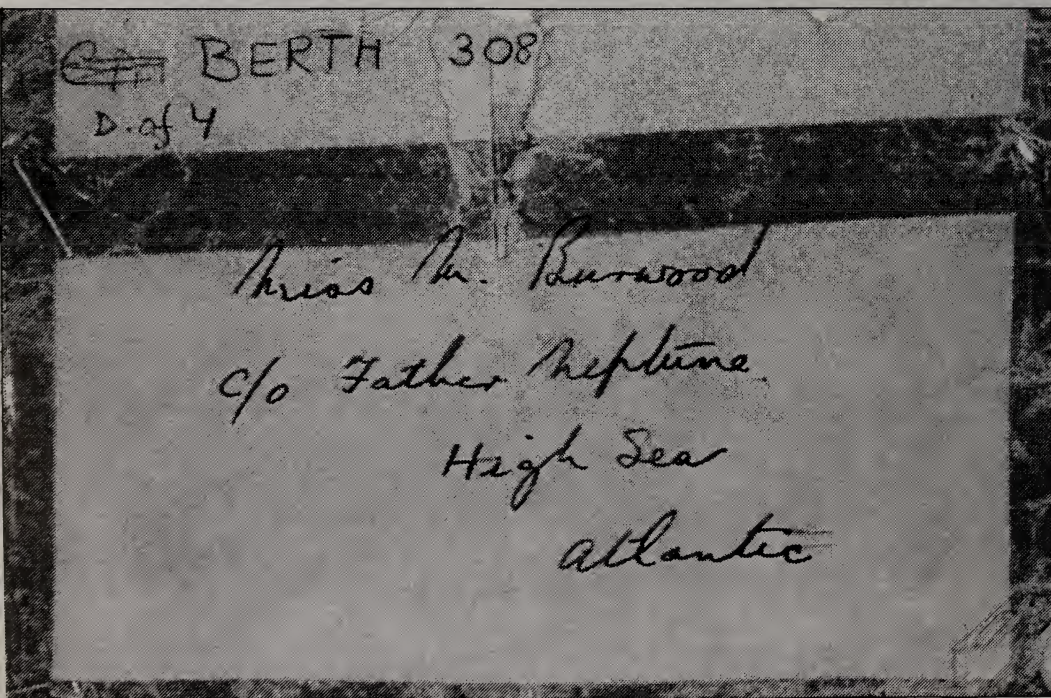 BERTH 308
D. of 4
Miss M. Burwood
c/o Father Neptune
High Sea
Atlantic